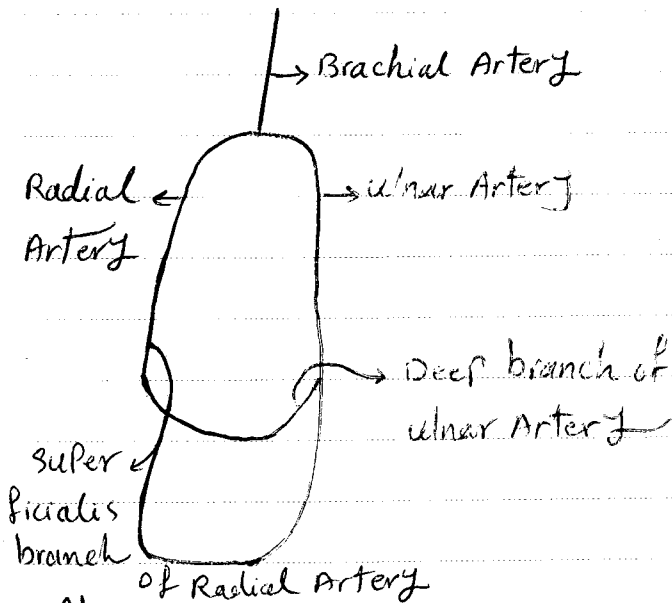 Brachial Artery
Radial
Artery
ulnar Artery
Deep branch of
ulnar Artery
super
ficialis
branch
of Radial Artery